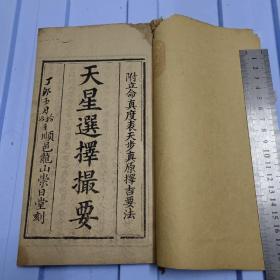 附立命真度表天步真原擇吉要法
天星選擇撮要
丁卯
順邑龍山崇日堂刻